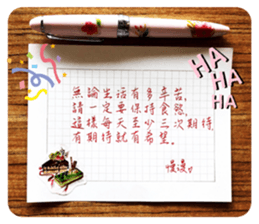 無論生活有多辛苦,
請一定要保持食慾,
這樣每天至少三次期待,
有期待就有希望。
慢慢。
HA
HA
HA